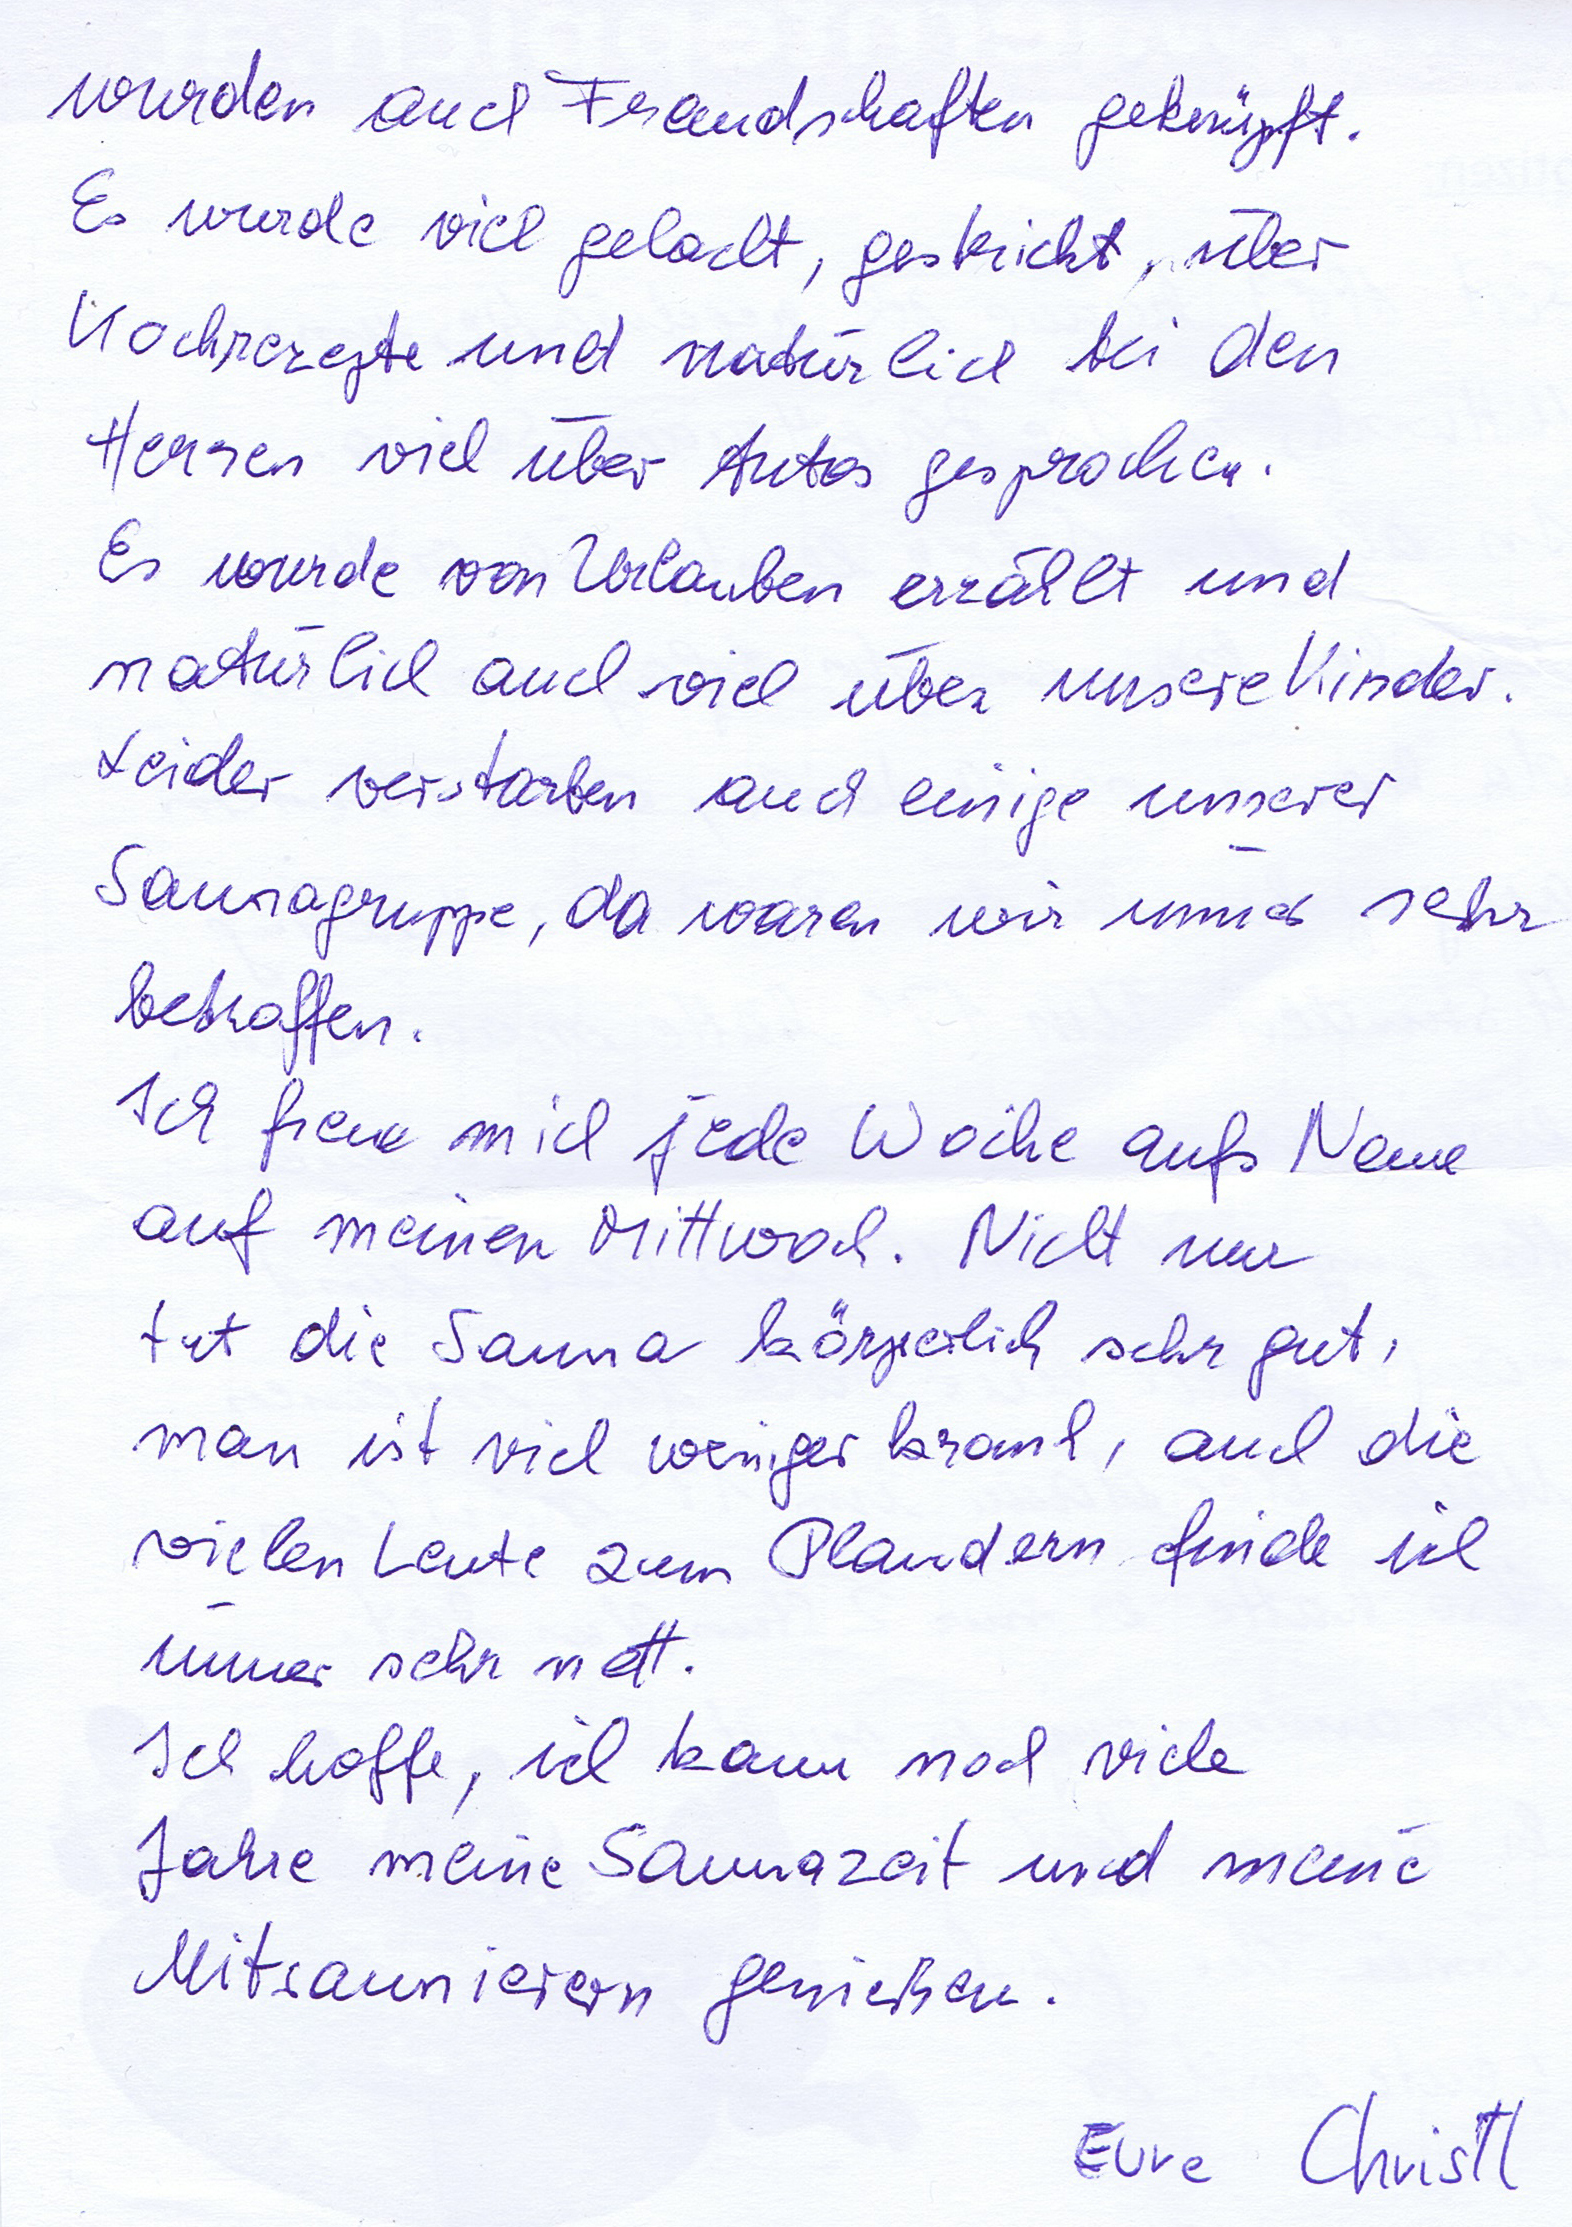 wurden auch Freundschaften geknüpft.
Es wurde viel gelacht, gestrickt, über
Kochrezepte und natürlich bei den
Herren viel über Autos gesprochen.
Es wurde von Urlauben erzählt und
natürlich auch viel über unsere Kinder.
Leider verstarben auch einige unserer
Saunagruppe, da waren wir immer sehr
betroffen.
Ich freue mich jede Woche aufs Neue
auf meinen Mittwoch. Nicht nur
tut die Sauna körperlich sehr gut,
man ist viel weniger krank, auch die
vielen Leute zum Plaudern finde ich
immer sehr nett.
Ich hoffe, ich kann noch viele
Jahre meine Saunazeit und meine
Mitsaunierern genießen.
Eure Christl